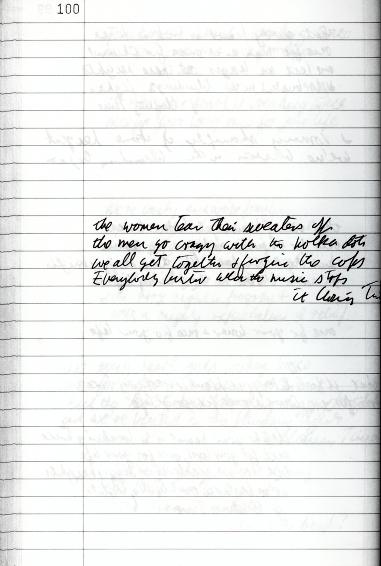 100
the women tear their sweaters off
the men go crazy with the polka dots
we all get together & forgive the cops
Everybody when the music stops
it Closing